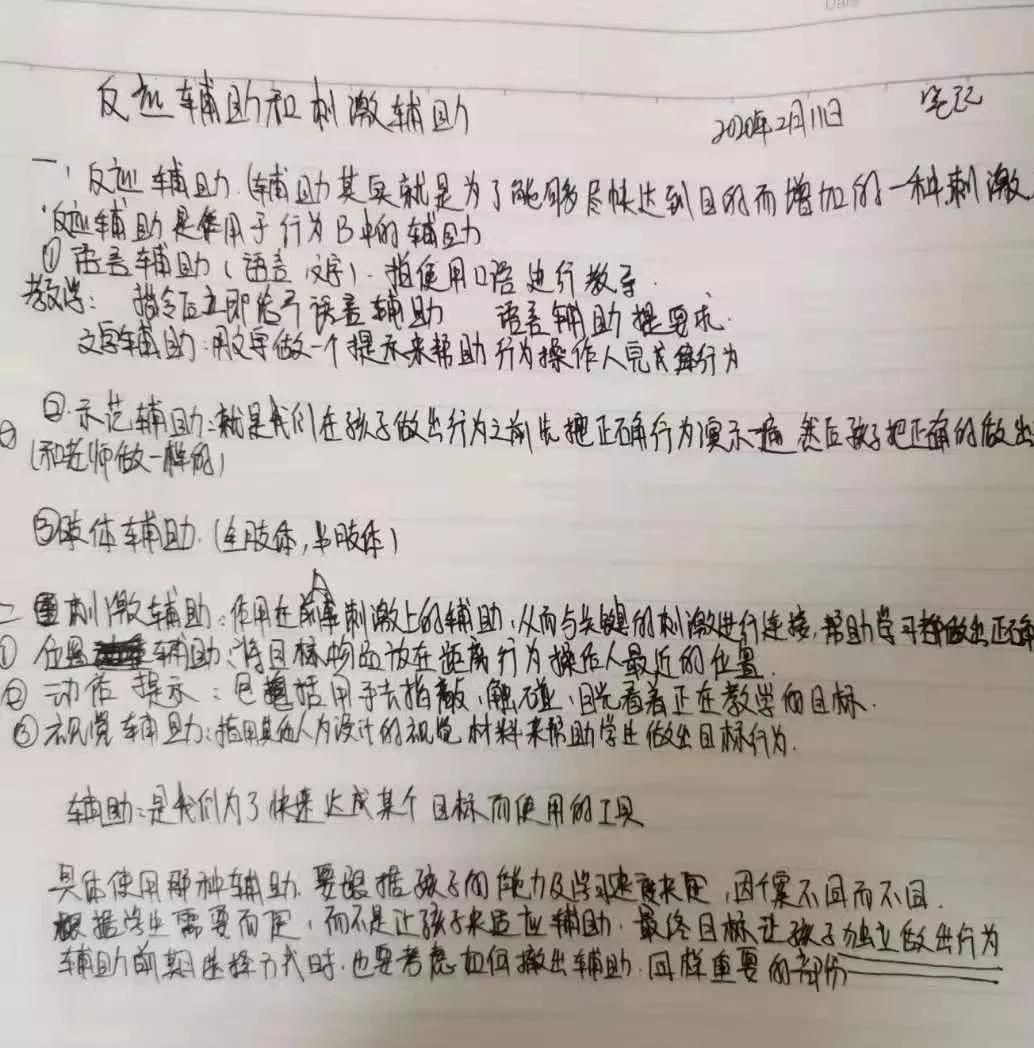 Date
反应辅助和刺激辅助
2020年2月11日 笔记
一、反应辅助.(辅助其实就是为了能够尽快达到目的而增加的一种刺激
反应辅助是作用于行为B中的辅助
①语言辅助(语言 文字).指使用口语进行教导.
教学: 指令后立即给予语言辅助 语言辅助提要求.
文字辅助:用文字做一个提示来帮助行为操作人完成行为
②.示范辅助:就是我们在孩子做出行为之前先把正确行为演示一遍 然后孩子把正确的做出
(和老师做一样的)
③肢体辅助.(全肢体,半肢体)
二 刺激辅助:作用在前事A刺激上的辅助,从而与关键的刺激进行连接,帮助学习者做出正确
① 位置辅助:将目标物品放在距离行为操作人最近的位置.
② 动作提示:包括用手去指、敲、触碰、目光看着正在教学的目标.
③ 视觉辅助:指用其他人为设计的视觉材料来帮助学生做出目标行为.
辅助:是我们为了快速达成某个目标而使用的工具
具体使用那种辅助.要跟据孩子的能力及学习速度来定,因个案不同而不同.
根据学生需要而定,而不是让孩子来适应辅助.最终目标让孩子独立做出行为
辅助前期选择方式时.也要考虑如何撤出辅助.同样重要的部份